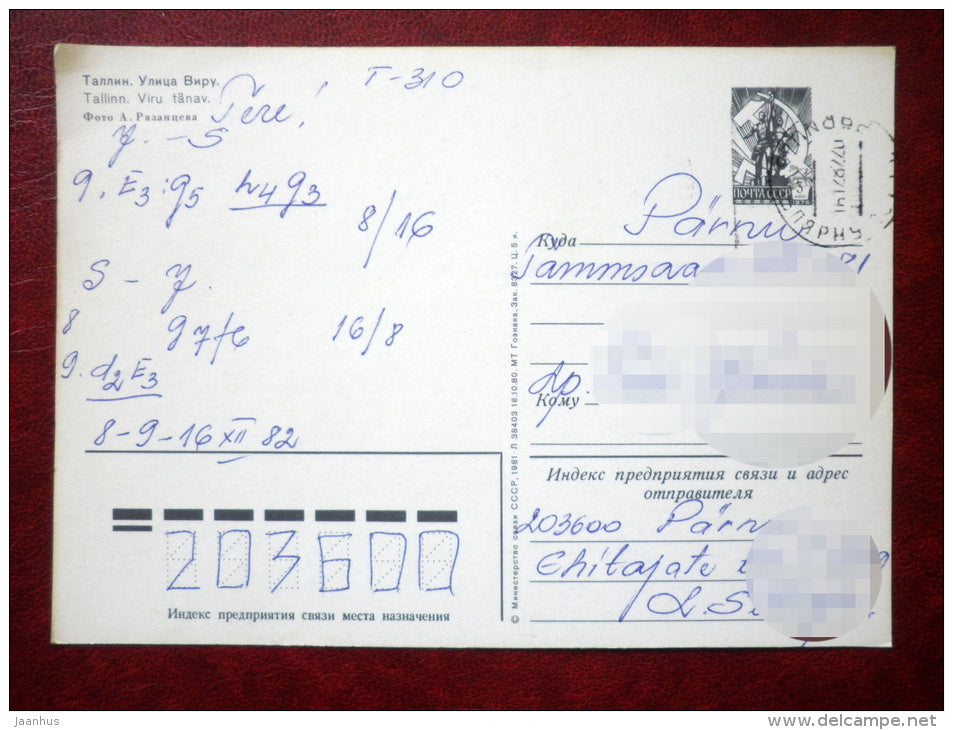 Таллин. Улица Виру.
Tallinn. Viru tänav.
Фото А. Рязанцева
Tere!
T-310
Y. - S
9. E3:g5 h4g3
8/16
S - Y.
8 g7f6 16/8
9. d2E3
8-9-16 XII 82
ПОЧТА СССР
ПЯРНУ
Куда Pärnu
Tammsaa
Ap.
Кому
Индекс предприятия связи и адрес
отправителя
203600 Pärn
Ehitajate
L. S
203600
Индекс предприятия связи места назначения
© Министерство связи СССР, 1981. Л 38403 16.10.80. МТ Гознака. Зак. 8327. Ц. 5 к.
jaanhus
www.delcampe.net